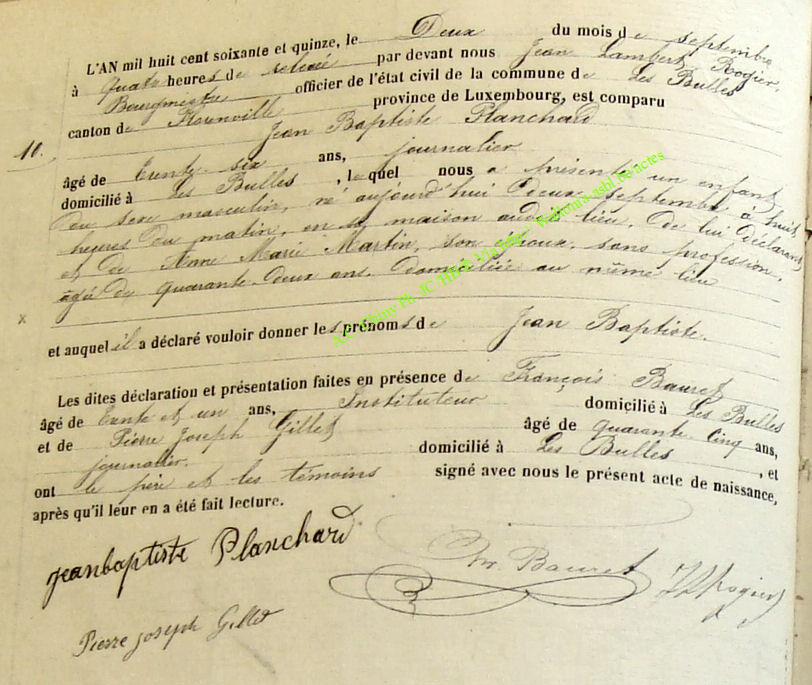 L'AN mil huit cent soixante et quinze, le Deux du mois de septembre
à quatre heures de relevée par devant nous Jean Lambert Rogier,
Bourgmestre officier de l'état civil de la commune de Les Bulles
canton de Florenville province de Luxembourg, est comparu
Jean Baptiste Planchard
10.
âgé de trente-six ans, journalier
domicilié à Les Bulles, lequel nous a présenté un enfant
du sexe masculin, né aujourd'hui deux septembre à huit
heures du matin, en sa maison audit lieu, de lui déclarant
et de Anne Marie Martin, son épouse, sans profession,
âgée de quarante-deux ans, domiciliée au même lieu
x
et auquel il a déclaré vouloir donner les prénoms de Jean Baptiste.
Les dites déclaration et présentation faites en présence de François Bauret
âgé de trente et un ans, Instituteur domicilié à Les Bulles
et de Pierre Joseph Gillet âgé de quarante-cinq ans,
journalier. domicilié à Les Bulles, et
ont le père et les témoins signé avec nous le présent acte de naissance,
après qu'il leur en a été fait lecture.
jeanbaptiste Planchard
Bauret
JL Rogier
Pierre joseph Gillet